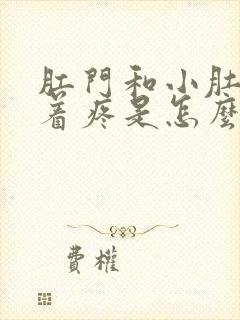 肛門和小肚
着疼是怎麼
費權